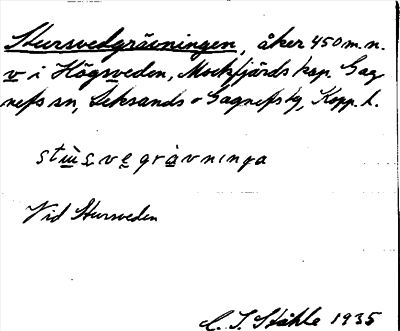 Stursvedgrävningen, åker 450 m. n.
v i Högsveden, Mockfjärds kap. Gag
nefs sn, Leksands o Gagnefs tg, Kopp. l.
stu̇̀s̲ve̲gràvnınga
Vid Stursveden
C. I. Ståhle 1935